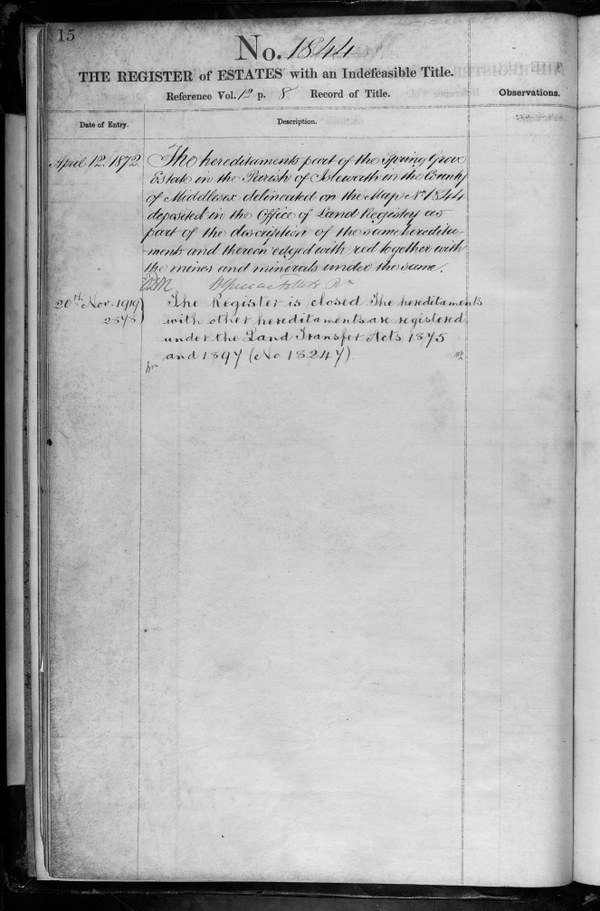 15
No. 1844
THE REGISTER of ESTATES with an Indefeasible Title.
Reference Vol. 12 p. 8 Record of Title.
Observations.
Date of Entry.
Description.
April 12. 1872
The hereditaments part of the Spring Grove
Estate in the Parish of Isleworth in the County
of Middlesex delineated on the Map No 1844
deposited in the Office of Land Registry as
part of the description of the same heredita-
ments and thereon edged with red together with
the mines and minerals under the same.
20th Nov. 1919
2878
The Register is closed The hereditaments
with other hereditaments are registered
under the Land Transfer Acts 1875
and 1897 (No 18247)